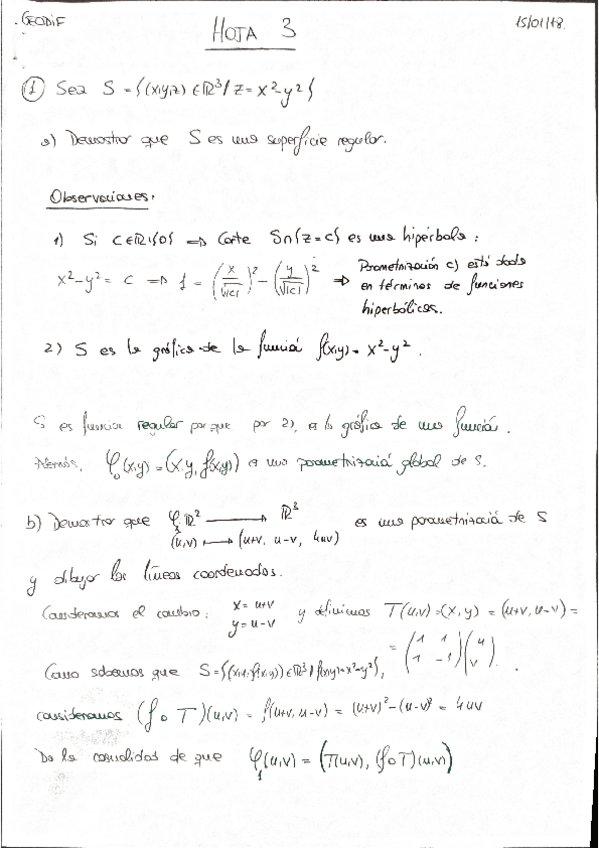 GEODIF
15/01/18.
HOJA 3
① Sea S = {(x,y,z) ∈ ℝ³ / z = x²-y²}
a) Demostrar que S es una superficie regular.
Observaciones:
1) Si c∈ℝ\{0} ⇒ Corte S∩{z=c} es una hipérbola:
x²-y² = c ⇒ 1 = (x/√|c|)² - (y/√|c|)² ⇒ Parametrización c) está dada
en términos de funciones
hiperbólicas.
2) S es la gráfica de la función f(x,y) = x²-y².
S es función regular porque por 2), es la gráfica de una función.
Además, φ₀(x,y) = (x,y,f(x,y)) es una parametrización global de S.
b) Demostrar que φ₁: ℝ² → ℝ³ es una parametrización de S
(u,v) ↦ (u+v, u-v, 4uv)
y dibujar las líneas coordenadas.
Consideramos el cambio: x = u+v y definimos T(u,v) = (x,y) = (u+v, u-v) =
y = u-v
= (1 1; 1 -1)(u; v).
Como sabemos que S = {(x,y,f(x,y)) ∈ ℝ³ / f(x,y) = x²-y²},
consideramos (f∘T)(u,v) = f(u+v, u-v) = (u+v)²-(u-v)² = 4uv
Da la casualidad de que φ₁(u,v) = (T(u,v), (f∘T)(u,v))